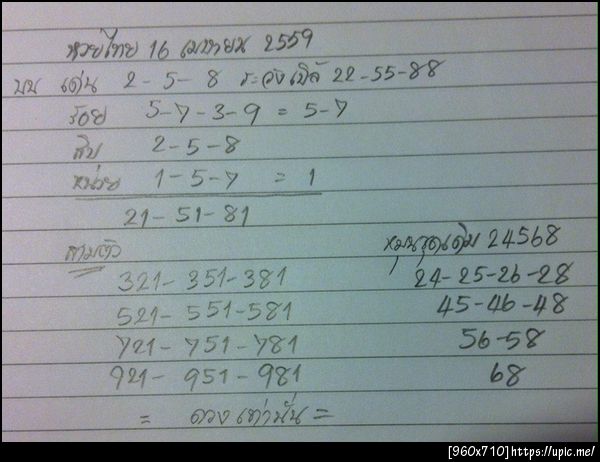 หวยไทย 16 เมษายน 2559
บน เด่น 2-5-8 ระวังเบิ้ล 22-55-88
ร้อย 5-7-3-9 = 5-7
สิบ 2-5-8
หน่วย 1-5-7 = 1
21-51-81
สามตัว
321-351-381
521-551-581
721-751-781
921-951-981
หมุนชุดเดิม 24568
24-25-26-28
45-46-48
56-58
68
= ดวงเท่านั้น =
[960x710]https://upic.me/